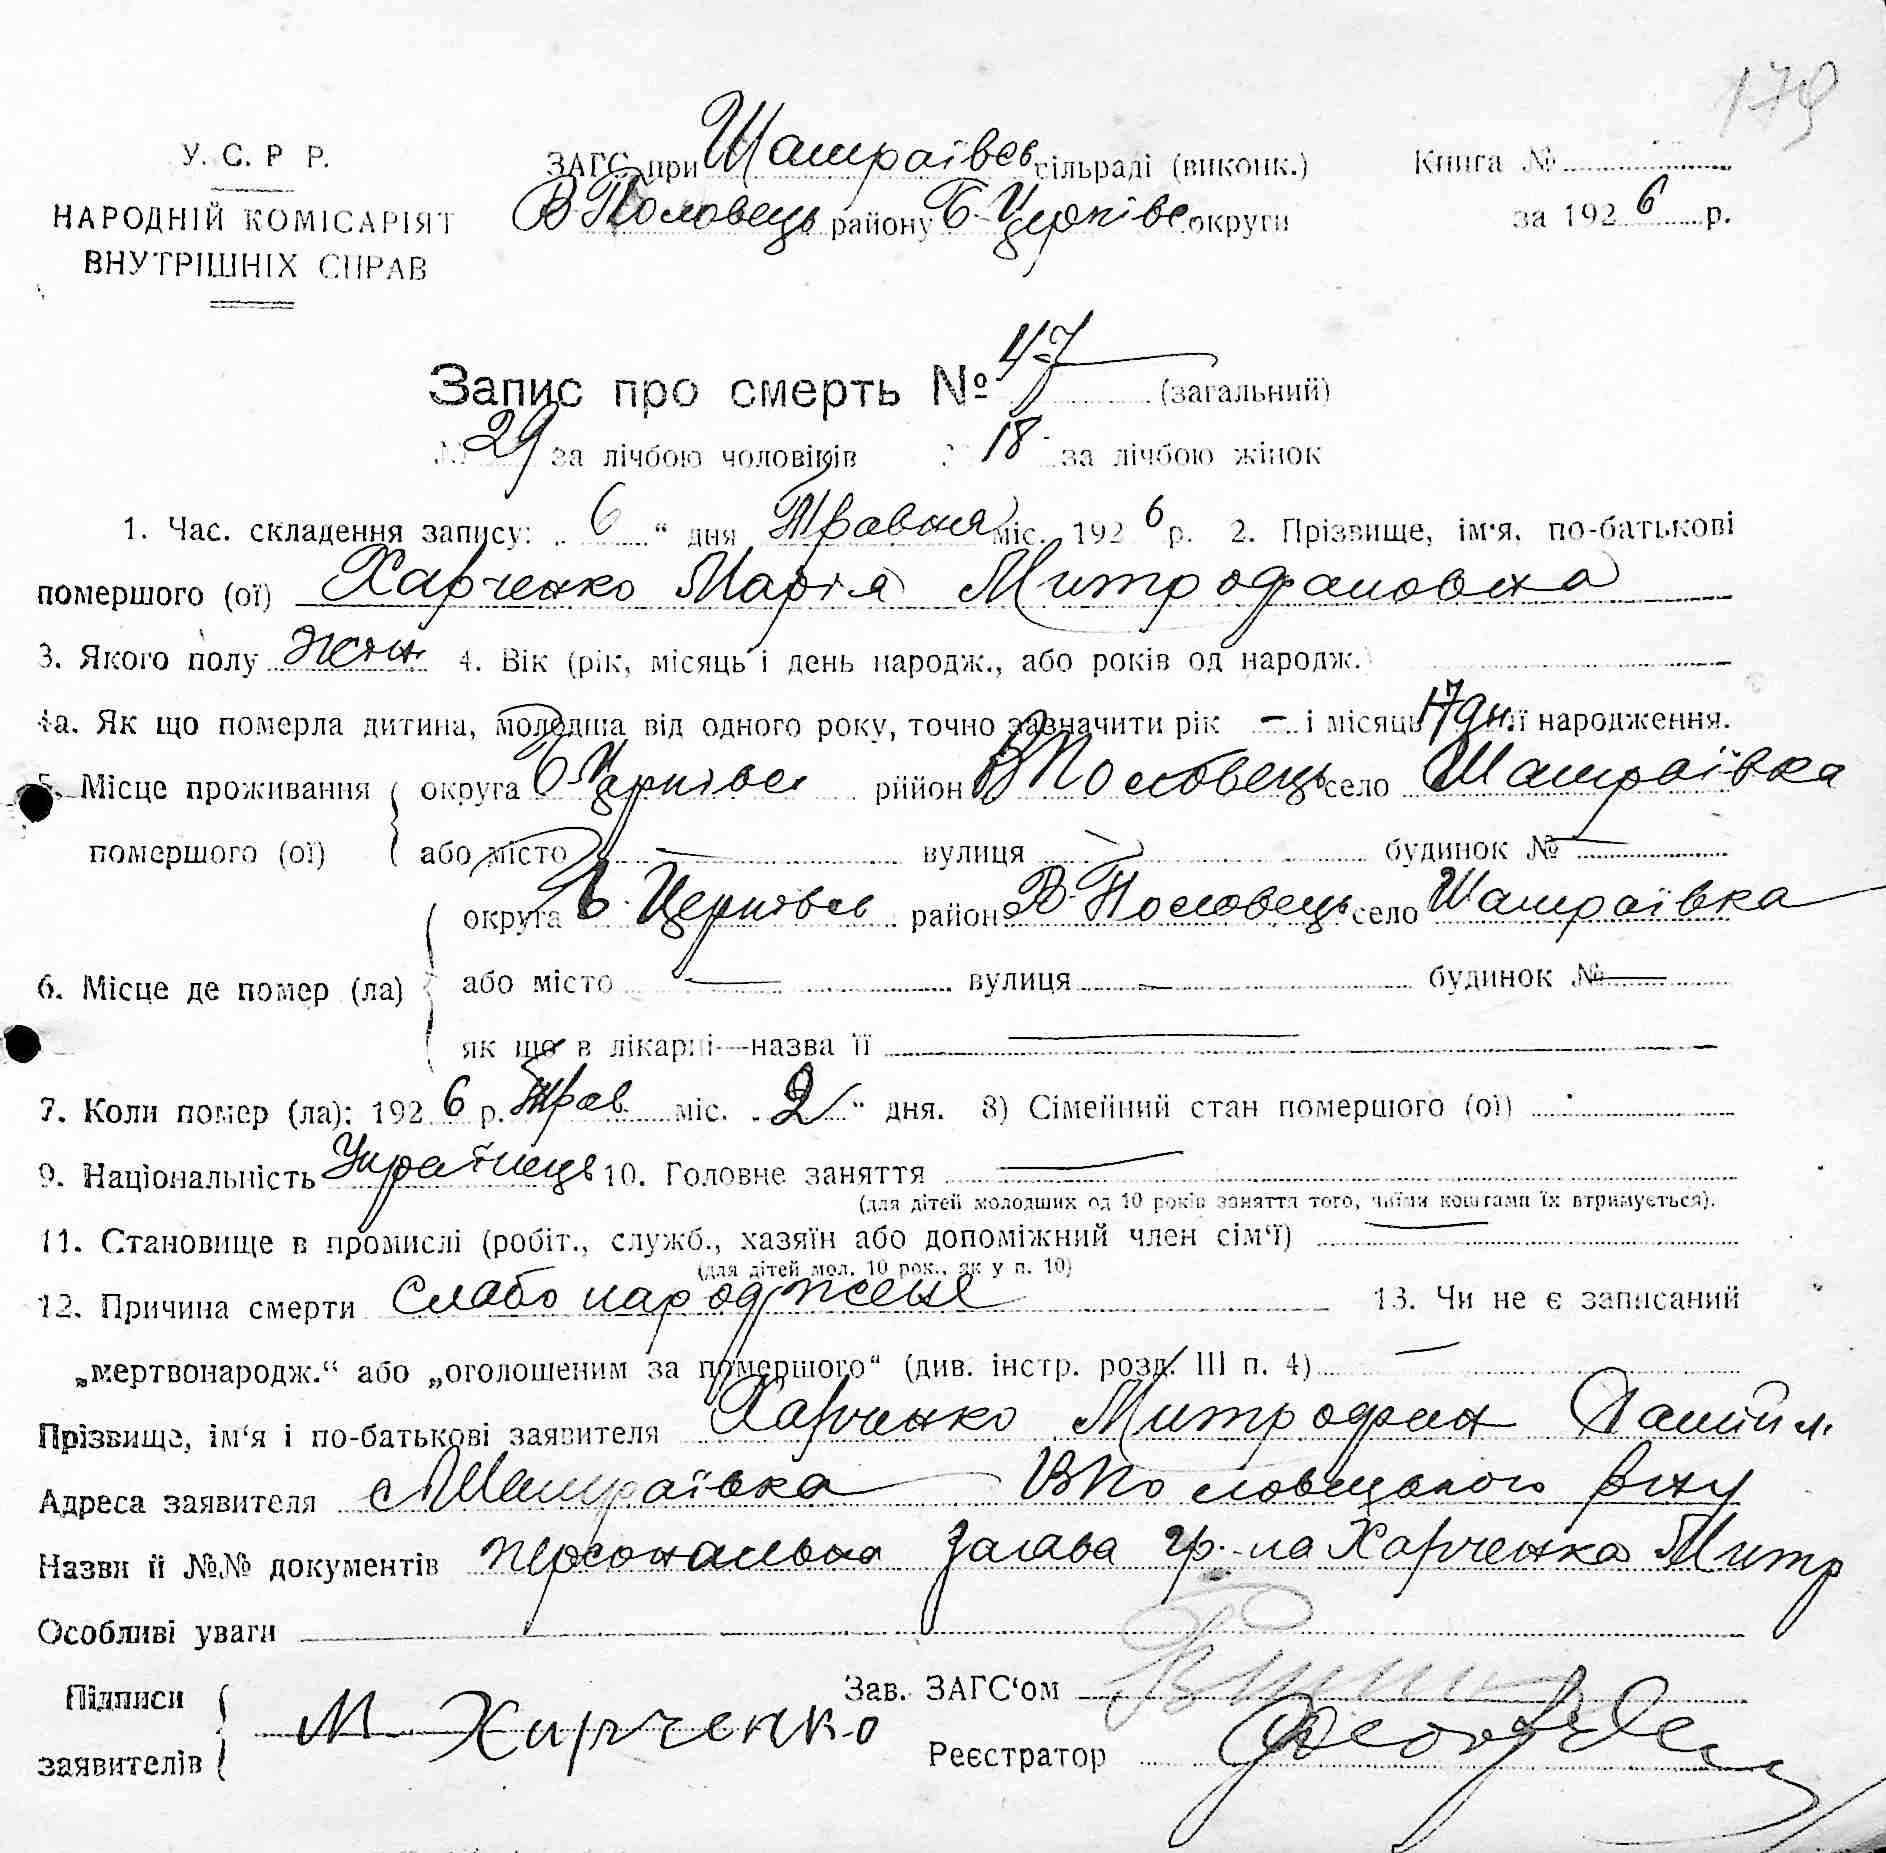 179
У. С. Р Р.
НАРОДНІЙ КОМІСАРІЯТ
ВНУТРІШНІХ СПРАВ
ЗАГС при Шамраївсь сільраді (виконк.)
В Половець району Б-Церківс округи
Книга №
за 1926 р.
Запис про смерть № 47 (загальний)
№ 29 за лічбою чоловіків № 18 за лічбою жінок
1. Час. складення запису: 6 “ дня Травня міс. 1926 р. 2. Прізвище, ім‘я, по-батькові
помершого (ої) Харченко Марія Митрофановна
3. Якого полу жін 4. Вік (рік, місяць і день народж., або років од народж.)
4а. Як що померла дитина, молодша від одного року, точно зазначити рік — і місяць 7 дн її народження.
5. Місце проживання помершого (ої) округа Б-Церківсь рийон В Половець село Шамраївка
або місто — вулиця — будинок № —
6. Місце де помер (ла) округа Б-Церківсь район В-Половець село Шамраївка
або місто — вулиця — будинок № —
як що в лікарні—назва її —
7. Коли помер (ла): 1926 р. Трав міс. 2 “ дня. 8) Сімейний стан помершого (ої)
9. Національність Українець 10. Головне заняття —
(для дітей молодших од 10 років заняття того, чиїми коштами їх втримується).
11. Становище в промислі (робіт., служб., хазяїн або допоміжний член сім‘ї) —
(для дітей мол. 10 рок., як у п. 10)
12. Причина смерти Слабо народженя 13. Чи не є записаний
„мертвонародж.“ або „оголошеним за помершого“ (див. інстр. розд. III п. 4) —
Прізвище, ім‘я і по-батькові заявителя Харченко Митрофан Даний л.
Адреса заявителя с Шамраївка В Половецького рну
Назви й №№ документів персональна заява гр.-на Харченка Митр
Особливі уваги
Підписи заявителів М Харченко
Зав. ЗАГС‘ом
Реєстратор